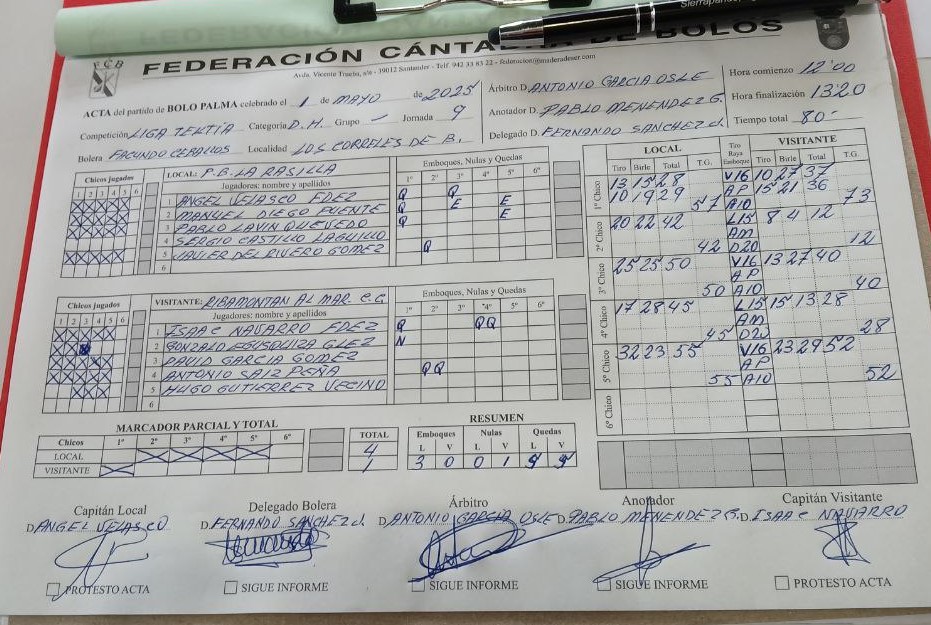 Sierrapando,
FCB
FEDERACIÓN CÁNTABRA DE BOLOS
Avda. Vicente Trueba, s/n - 39012 Santander - Telf. 942 33 83 22 - federacion@maderadeser.com
ACTA del partido de BOLO PALMA celebrado el 1 de MAYO de 2025
Competición LIGA TEKTIA Categoría D.H. Grupo - Jornada 9
Bolera FACUNDO CEBALLOS Localidad LOS CORRALES DE B.
Árbitro D. ANTONIO GARCIA OSLE
Anotador D. PABLO MENENDEZ G.
Delegado D. FERNANDO SANCHEZ J.
Hora comienzo 12'00
Hora finalización 13'20
Tiempo total 80-
Chicos jugados
1 2 3 4 5 6
LOCAL: P.B. LA RASILLA
Jugadores: nombre y apellidos
Emboques, Nulas y Quedas
1º 2º 3º 4º 5º 6º
1 ANGEL VELASCO FDEZ Q Q
2 MANUEL DIEGO PUENTE Q E E
3 PABLO LAVIN QUEVEDO Q E
4 SERGIO CASTILLO LAGUILLO
5 JAVIER DEL RIVERO GOMEZ Q
6
Chicos jugados
1 2 3 4 5 6
VISITANTE: RIBAMONTAN AL MAR C.G.
Jugadores: nombre y apellidos
Emboques, Nulas y Quedas
1º 2º 3º "4º 5º 6º
1 ISAAC NAVARRO FDEZ Q QQ
2 GONZALO EGUSQUIZA GLEZ N
3 DAVID GARCIA GOMEZ
4 ANTONIO SAIZ PEÑA QQ
5 HUGO GUTIERREZ VECINO
6
LOCAL VISITANTE
Tiro Birle Total T.G. Tiro Raya Emboque Tiro Birle Total T.G.
1º Chico 13 15 28 V16 10 27 37
10 19 29 AP 15 21 36
57 A10 73
2º Chico 20 22 42 L15 8 4 12
AM
42 D20 12
3º Chico 25 25 50 V16 13 27 40
AP
50 A10 40
4º Chico 17 28 45 L15 15 13 28
AM
45 D20 28
5º Chico 32 23 55 V16 23 29 52
AP
55 A10 52
6º Chico
MARCADOR PARCIAL Y TOTAL
Chicos 1º 2º 3º 4º 5º 6º TOTAL
LOCAL 4
VISITANTE 1
RESUMEN
Emboques Nulas Quedas
L V L V L V
3 0 0 1 5 5
Capitán Local Delegado Bolera Árbitro Anotador Capitán Visitante
D. ANGEL VELASCO D. FERNANDO SANCHEZ J. D. ANTONIO GARCIA OSLE D. PABLO MENENDEZ G. D. ISAAC NAVARRO
PROTESTO ACTA SIGUE INFORME SIGUE INFORME SIGUE INFORME PROTESTO ACTA